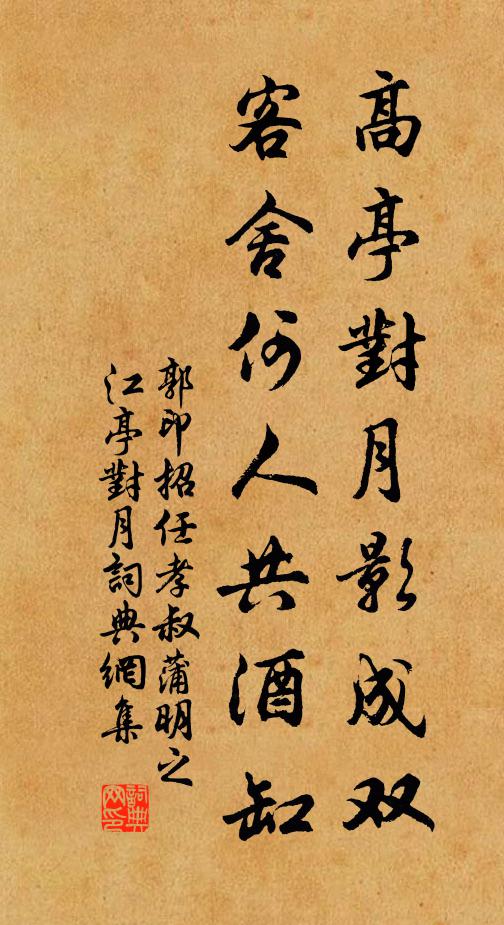 高亭對月影成双
客舍何人共酒缸
郭印招任孝叔蒲明之
江亭對月詞典網集
詞典網印